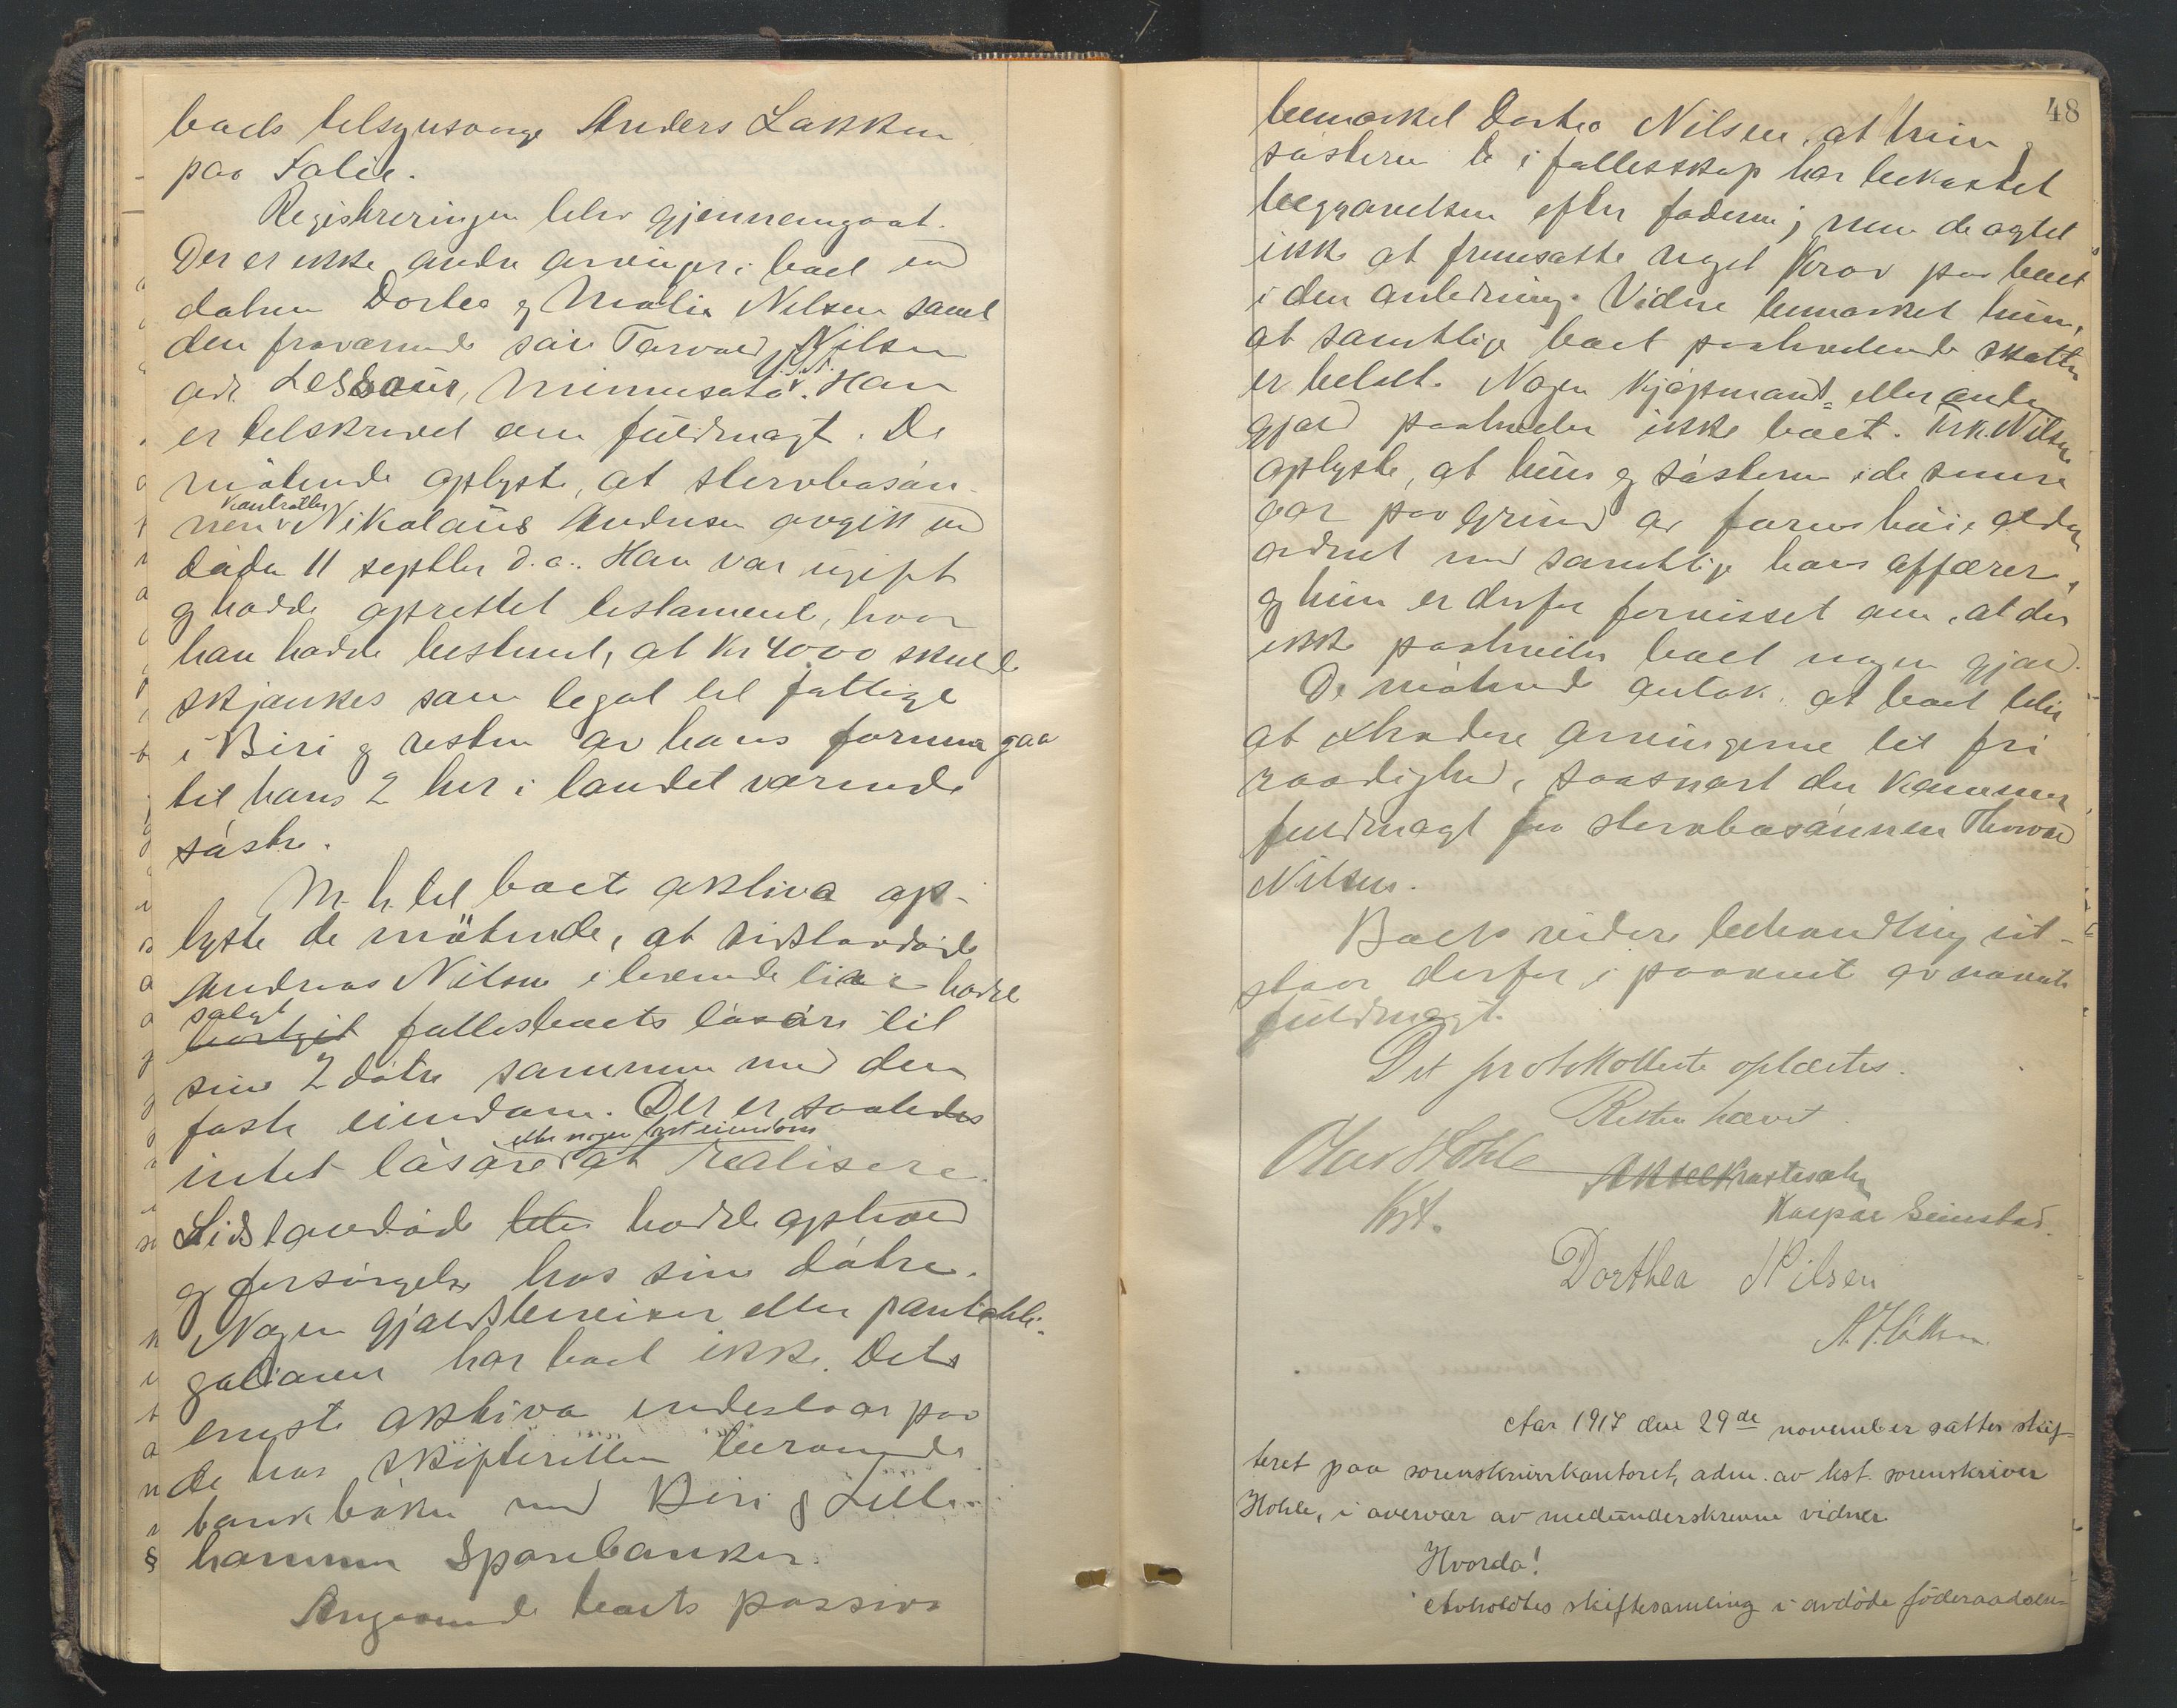 boets tilsynsverge Anders Løkken
paa Falie.
Registreringen blev gjennemgaat.
Der er ikke andre arvinger i boet end
døtrene Dortea og Malia Nilsen samt
den fraværende søn Torvald Nilsen
adr. LeSueur, Minnesota U.S.A. Han
er tilskrevet om fuldmagt. De
møtende oplyste, at stervbosøn-
nen Kontrollør Nikolaus Andersen avgik ved
døden 11 septbr d.a. Han var ugift
og hadde oprettet testament, hvor
han hadde bestemt, at Kr 4000 skulde
skjænkes som legat til fattige
i Biri og resten av hans formue gaa
til hans 2 her i landet værende
søstre.
M. h. til boets aktiva op-
lyste de møtende, at sidstavdøde
Andreas Nilsen i levende live hadde
solgt bortgit fællesboets løsøre til
sine 2 døtre sammen med den
faste eiendom. Der er saaledes
intet løsøre eller nogen fast eiendom at realisere.
Sidstavdøde blev hadde ophold
og forsørgelse hos sine døtre.
Nogen gjældsbeviser eller pantobli-
gationer har boet ikke. Dets
eneste aktiva indestaar paa
de hos skifteretten beroende
bankbøker med Biri og Lille-
hammer Sparebanker.
Angaaende boets passiva
48
bemerket Dortea Nilsen, at hun og
søsteren de i fællesskap har bekostet
begravelsen efter faderen; men de agtet
ikke at fremsætte noget krav paa boet
i den anledning. Videre bemerket hun,
at samtlige boet paahvilende skatter
er betalt. Nogen kjøpmands- eller anden
gjæld paahviler ikke boet. Frk. Nilsen
oplyste, at hun og søsteren i de senere
aar paa grund av farens høie alder
ordnet med samtlige hans affærer,
og hun er derfor forvisset om, at der
ikke paahviler boet nogen gjæld.
De møtende antok, at boet blir
at extradere arvingerne til fri
raadighed, saasnart der kommer
fuldmagt fra stervbosønnen Thorvald
Nilsen.
Boets videre behandling ut-
staar derfor i paavente av nævnte
fuldmagt.
Det protokollerte oplæstes.
Retten hævet.
Olav Hohle
Kst.
Kaspar Seimstad.
Dorthea Nilsen
Aar 1917 den 29de november sattes skif-
teret paa sorenskriverkontoret, adm. av kst. sorenskriver
Hohle, i overvær av medunderskrevne vidner.
Hvorda!
Avholdtes skiftesamling i avdøde föderaads